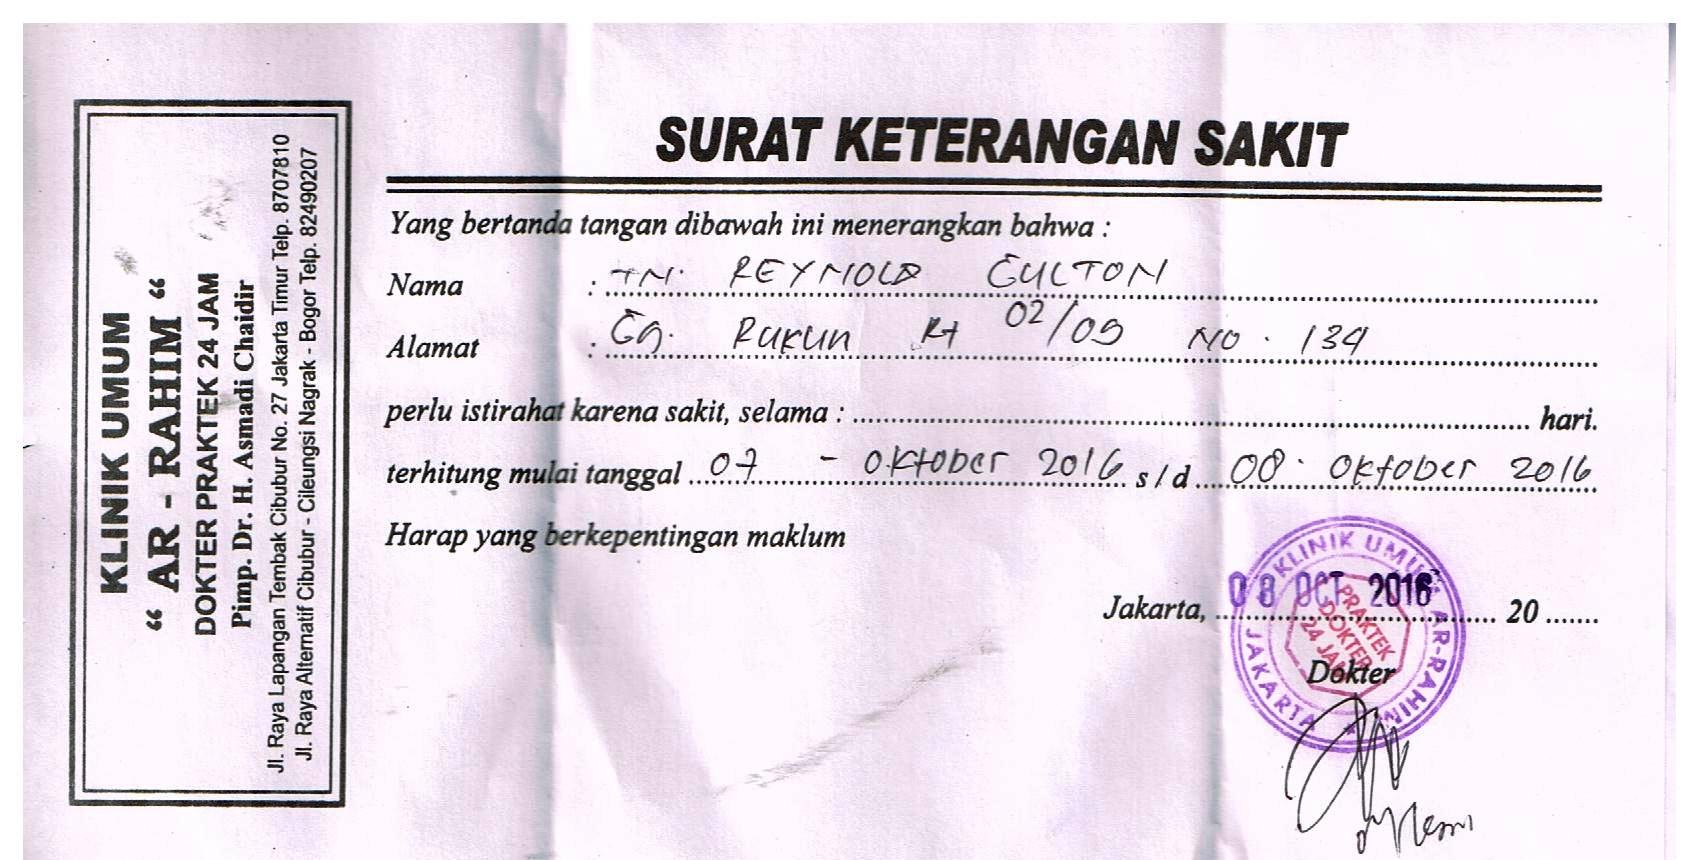 KLINIK UMUM
“ AR - RAHIM “
DOKTER PRAKTEK 24 JAM
Pimp. Dr. H. Asmadi Chaidir
Jl. Raya Lapangan Tembak Cibubur No. 27 Jakarta Timur Telp. 8707810
Jl. Raya Alternatif Cibubur - Cileungsi Nagrak - Bogor Telp. 82490207
SURAT KETERANGAN SAKIT
Yang bertanda tangan dibawah ini menerangkan bahwa :
Nama : TN. REYNOLD GULTOM
Alamat : Gg. RUKUN Rt 02/09 NO. 134
perlu istirahat karena sakit, selama : ........ hari.
terhitung mulai tanggal 07 - OKTOBER 2016 s/d 08. OKTOBER 2016
Harap yang berkepentingan maklum
Jakarta, 08 OCT 2016 20 .......
KLINIK UMUM AR-RAHIM
JAKARTA
PRAKTEK
DOKTER
24 JAM
Dokter